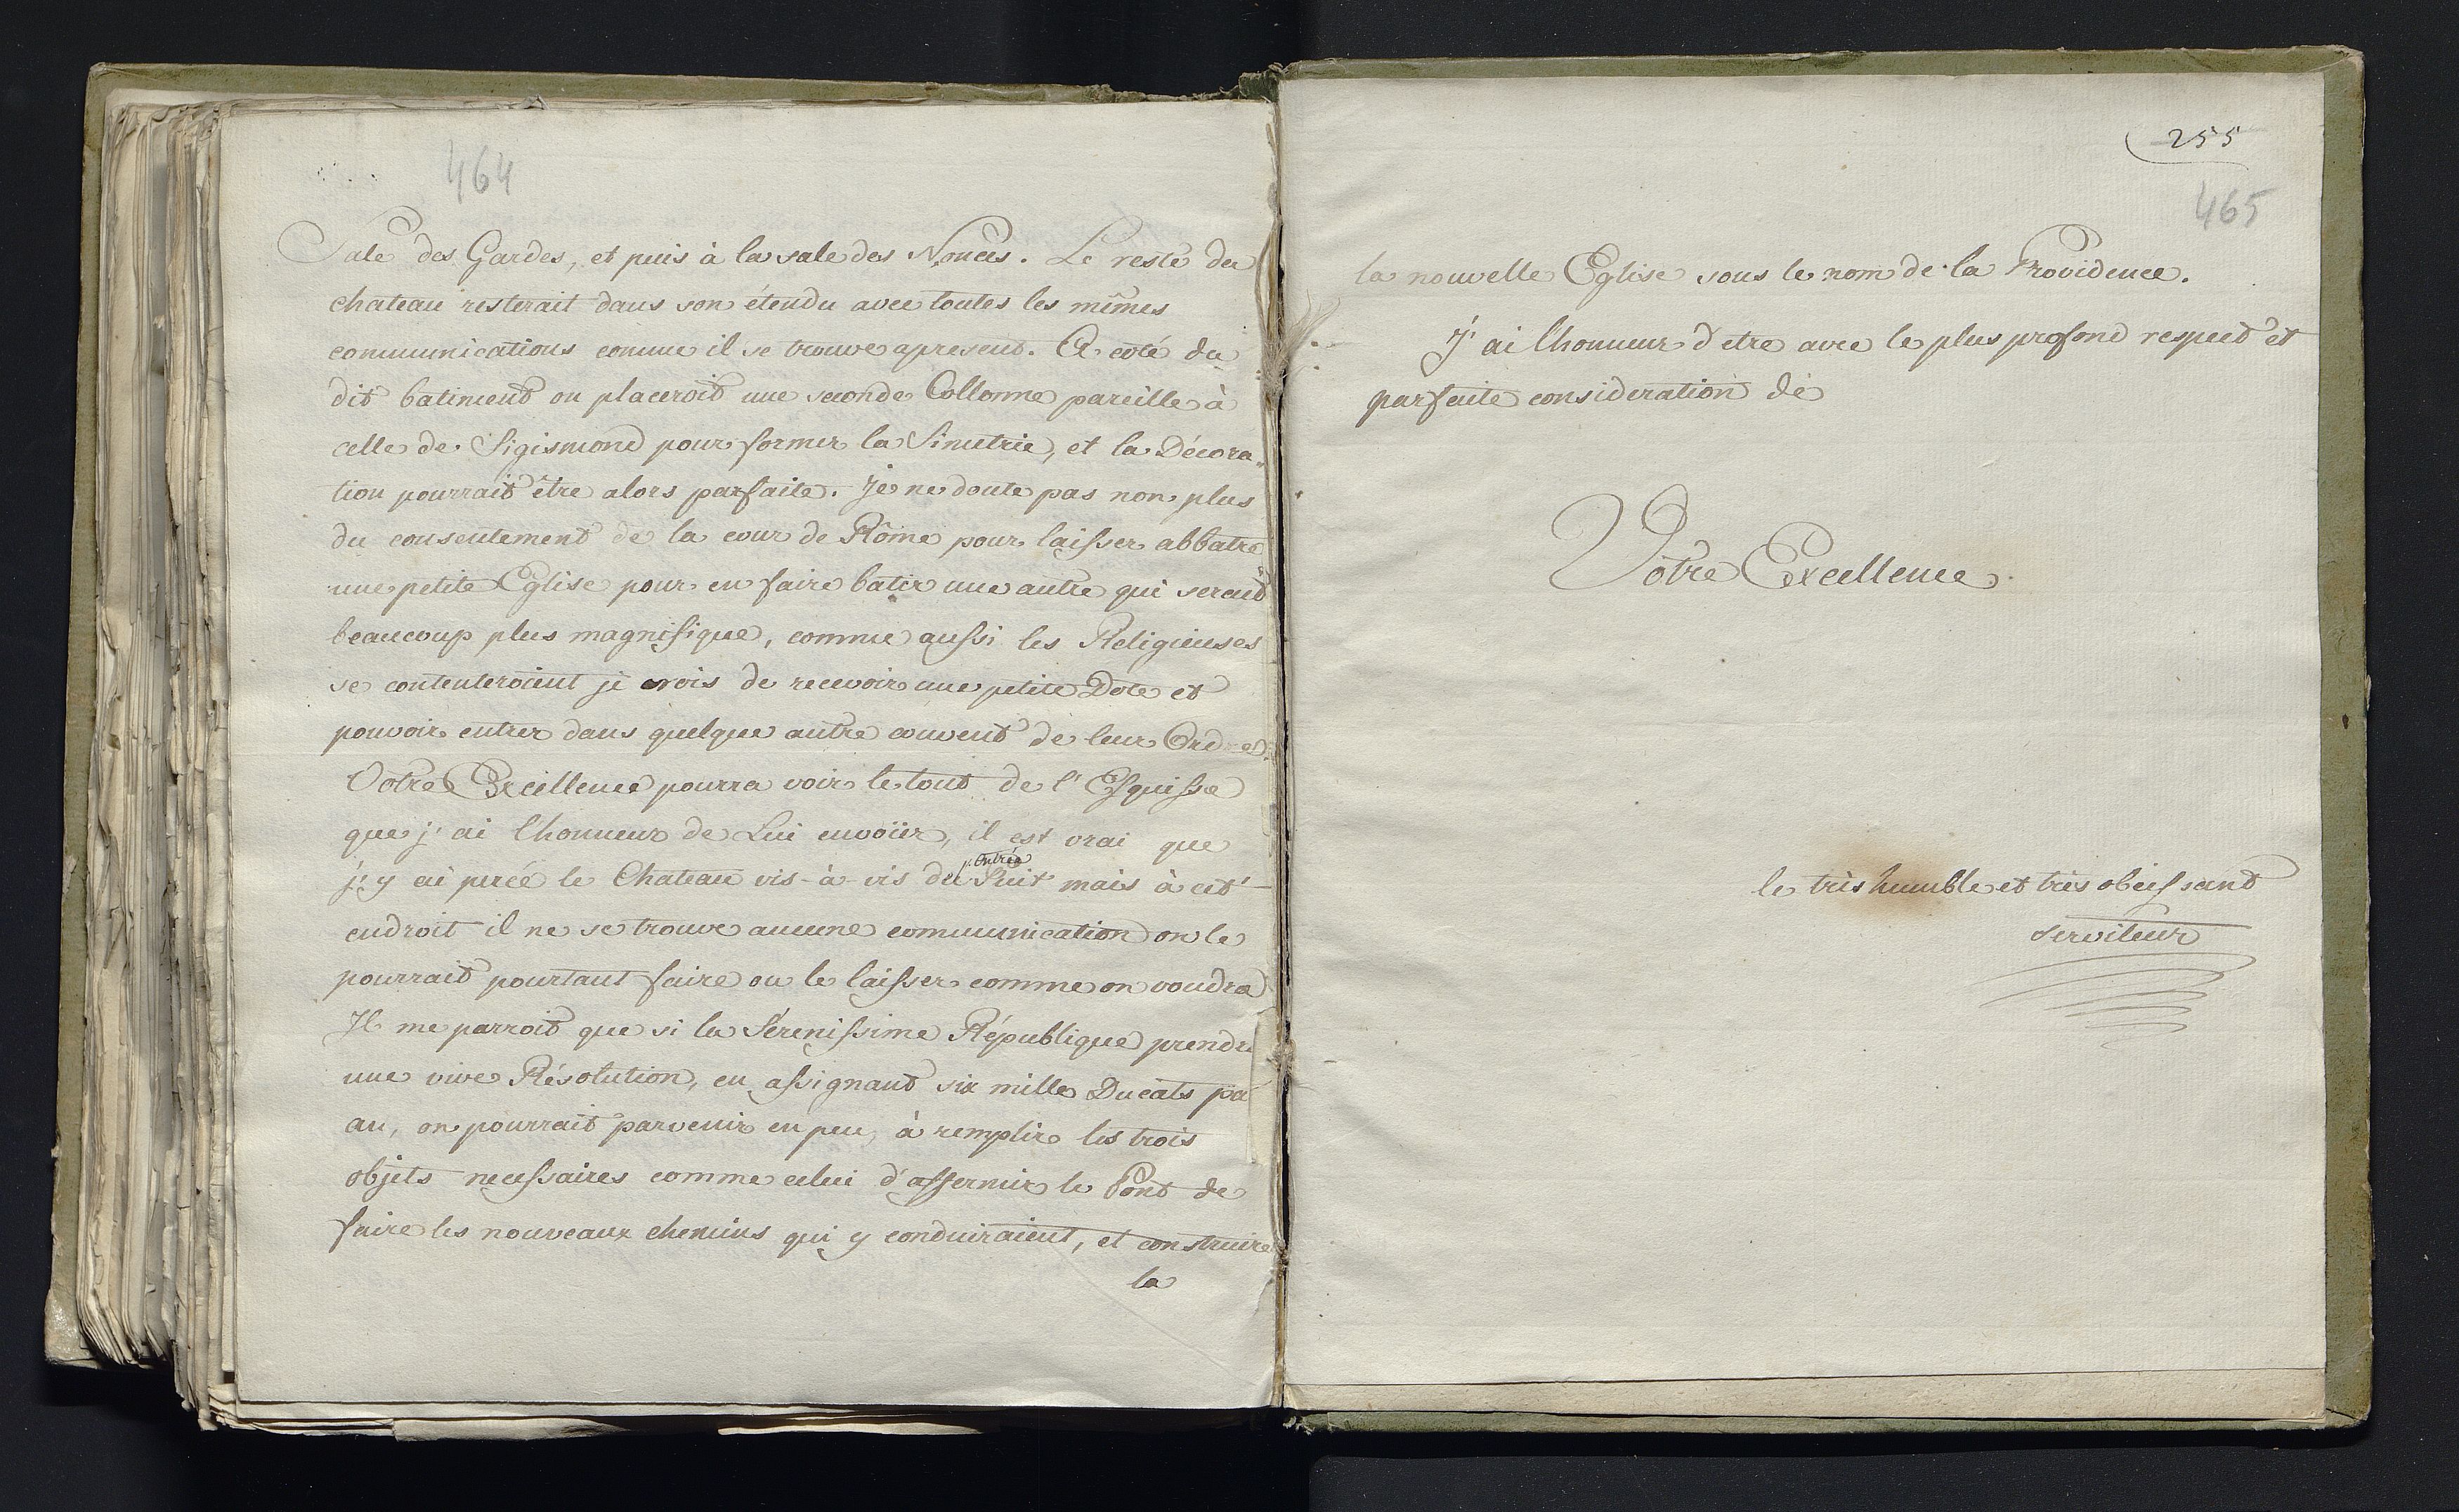 464
Sale des Gardes, et puis à la sale des Nonces. Le reste du
chateau resterait dans son étendu avec toutes les mêmes
communications comme il se trouve apresent. A coté du
dit batiment on placeroit une seconde Collonne pareille à
celle de Sigismond pour former la Simetrie, et la Décora„
tion pourrait être alors parfaite. Je ne doute pas non plus
du consentement de la cour de Rôme pour laisser abbatre
une petite Eglise pour en faire batir une autre qui serait
beaucoup plus magnifique, comme aussi les Religieuses
se contenteroient je crois de recevoir une petite Dote et
pouvoir entrer dans quelque autre couvent de leur Ordre.
Votre Excellence pourra voir le tout de l'Esquisse
que j'ai l'honneur de Lui envoïer, il est vrai que
j'y ai percé le Chateau vis-à-vis du Puit mais à cet
endroit il ne se trouve aucune communication on le
pourrait pourtant faire ou le laisser comme on voudra
Il me parroit que si la Sérenissime République prendr
une vive Résolution, en assignant six mille Ducats pa
an, on pourrait parvenir en peu, à remplir les trois
objets necessaires comme celui d'affermir le Pont de
faire les nouveaux chemins qui y conduiraient, et construire
la
255
465
la nouvelle Eglise sous le nom de la Providence.
J'ai l'honneur d'etre avec le plus profond respect et
parfaite consideration de
Votre Excellence
le très humble et très obeissant
serviteur